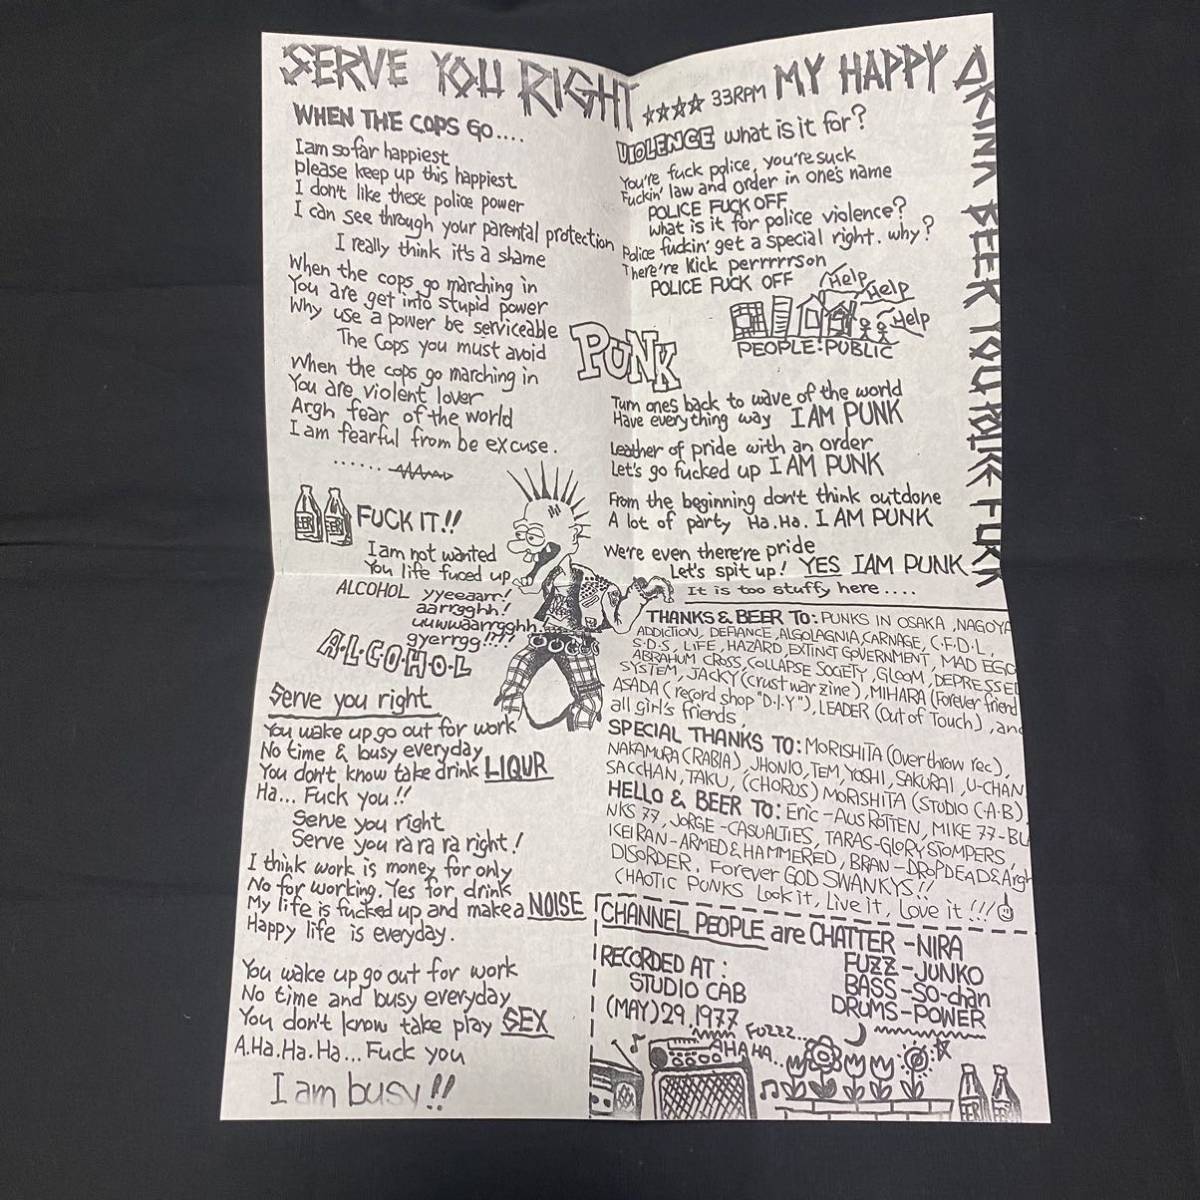 SERVE YOU RIGHT
☆☆☆☆ 33RPM MY HAPPY
DRINK BEER YOU POLICE FUCK
WHEN THE COPS GO....
I am so far happiest
please keep up this happiest
I don't like these police power
I can see through your parental protection
I really think it's a shame
When the cops go marching in
You are get into stupid power
Why use a power be serviceable
The Cops you must avoid
When the cops go marching in
You are violent lover
Argh fear of the world
I am fearful from be excuse.
FUCK IT!!
I am not wanted
You life fuced up
ALCOHOL yyeeaarr!
aarrgghh!
uuwwaarrgghh.
gyerrgg!!??
A·L·C·O·H·O·L
Serve you right
You wake up go out for work
No time & busy everyday
You don't know take drink LIQUR
Ha... Fuck you!!
Serve you right
Serve you ra ra ra right!
I think work is money for only
No for working. Yes for drink
My life is fucked up and make a NOISE
Happy life is everyday.
You wake up go out for work
No time and busy everyday
You don't know take play SEX
A.Ha.Ha.Ha... Fuck you
I am busy!!
VIOLENCE what is it for?
You're fuck police, you're suck
Fuckin' law and order in one's name
POLICE FUCK OFF
What is it for police violence?
Police fuckin' get a special right. why?
There're kick perrrrrson
POLICE FUCK OFF
Help
Help
Help
PEOPLE:PUBLIC
PUNK
Turn ones back to wave of the world
Have everything way I AM PUNK
Leather of pride with an order
Let's go fucked up I AM PUNK
From the beginning don't think outdone
A lot of party Ha.Ha. I AM PUNK
We're even there're pride
Let's spit up! YES I AM PUNK
It is too stuffy here....
THANKS & BEER TO: PUNKS IN OSAKA, NAGOYA
ADDICTION, DEFIANCE, ALGOLAGNIA, CARNAGE, C·F·D·L,
S·D·S, LIFE, HAZARD, EXTINCT GOVERNMENT, MAD EGO
ABRAHUM CROSS, COLLAPSE SOCIETY, GLOOM, DEPRESSED
SYSTEM, JACKY (crust war zine), MIHARA (Forever friend
ASADA (record shop "D·I·Y"), LEADER (Out of Touch), and
all girl's friends,
SPECIAL THANKS TO: MORISHITA (Over throw rec),
NAKAMURA (RABIA), JHONIO, TEM, YOSHI, SAKURAI, U-CHAN
SACCHAN, TAKU, (CHORUS) MORISHITA (STUDIO C·A·B)
HELLO & BEER TO: Eric-AUS ROTTEN, MIKE 77-BU
NKS 77, JORGE-CASUALTIES, TARAS-GLORY STOMPERS,
KEIRAN-ARMED & HAMMERED, BRAN-DROPDEAD & Argh
DISORDER. Forever GOD SWANKYS!!
CHAOTIC PUNKS Look it, Live it, Love it!!!
CHANNEL PEOPLE are CHATTER-NIRA
FUZZ-JUNKO
BASS-So-chan
DRUMS-POWER
RECORDED AT:
STUDIO CAB
(MAY) 29. 1977
FUZZZ...
AHAHA..